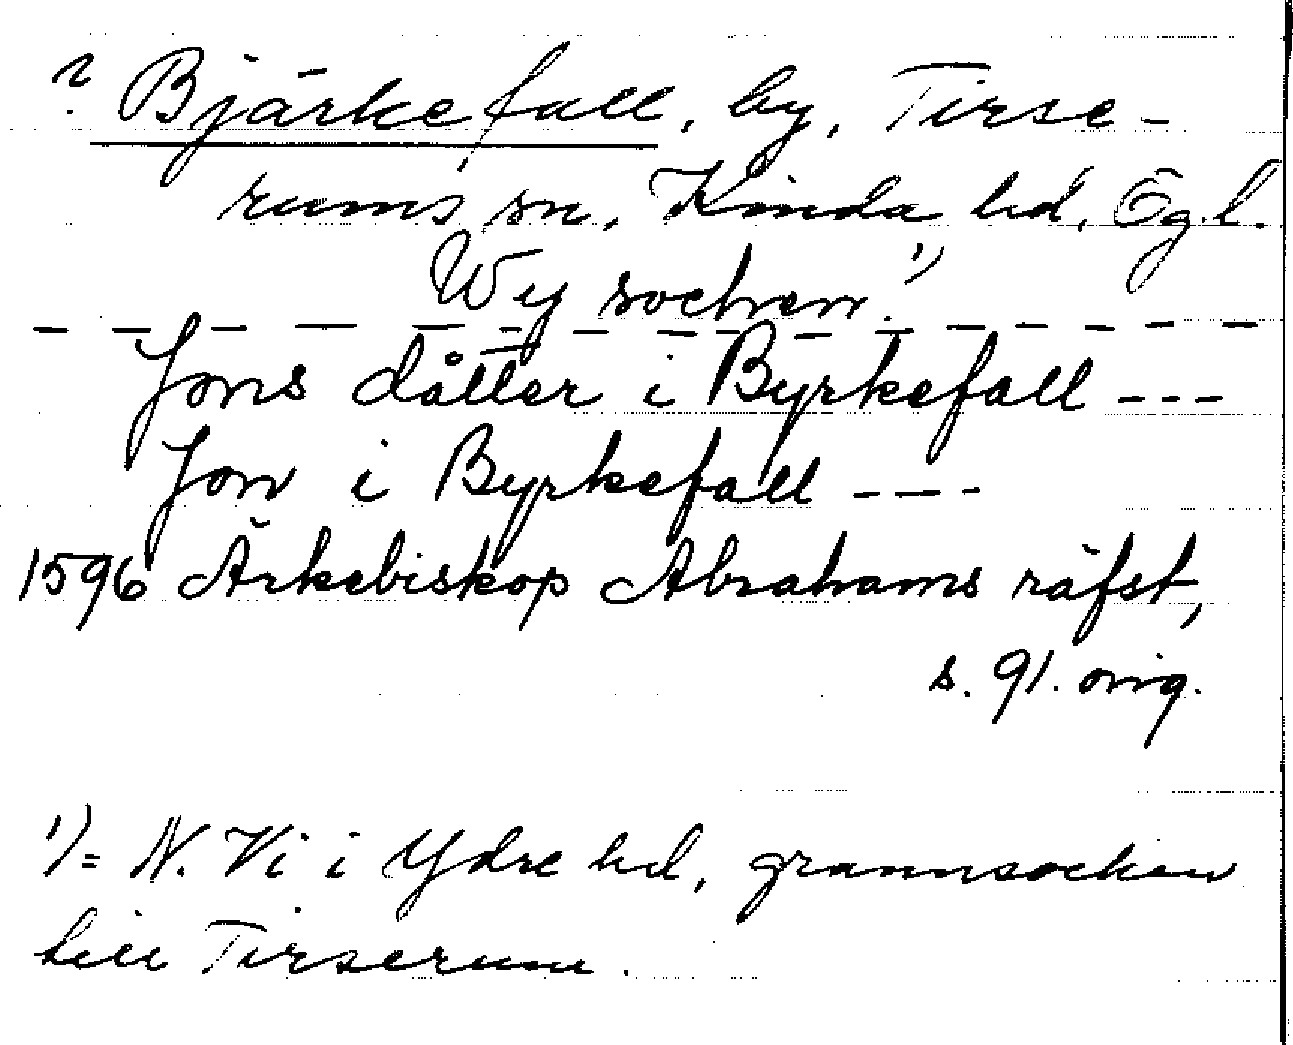 ? Bjärkefall, by, Tirse-
rums sn, Kinda hd, Ög.l.
Wy sochen.¹⁾
- - - - - - - - - - - - -
Jons dåtter i Byrkefall ---
Jon i Byrkefall ---
1596 Ärkebiskop Abrahams räfst,
s. 91. orig.
¹⁾= N. Vi i Ydre hd, grannsocken
till Tirserum.